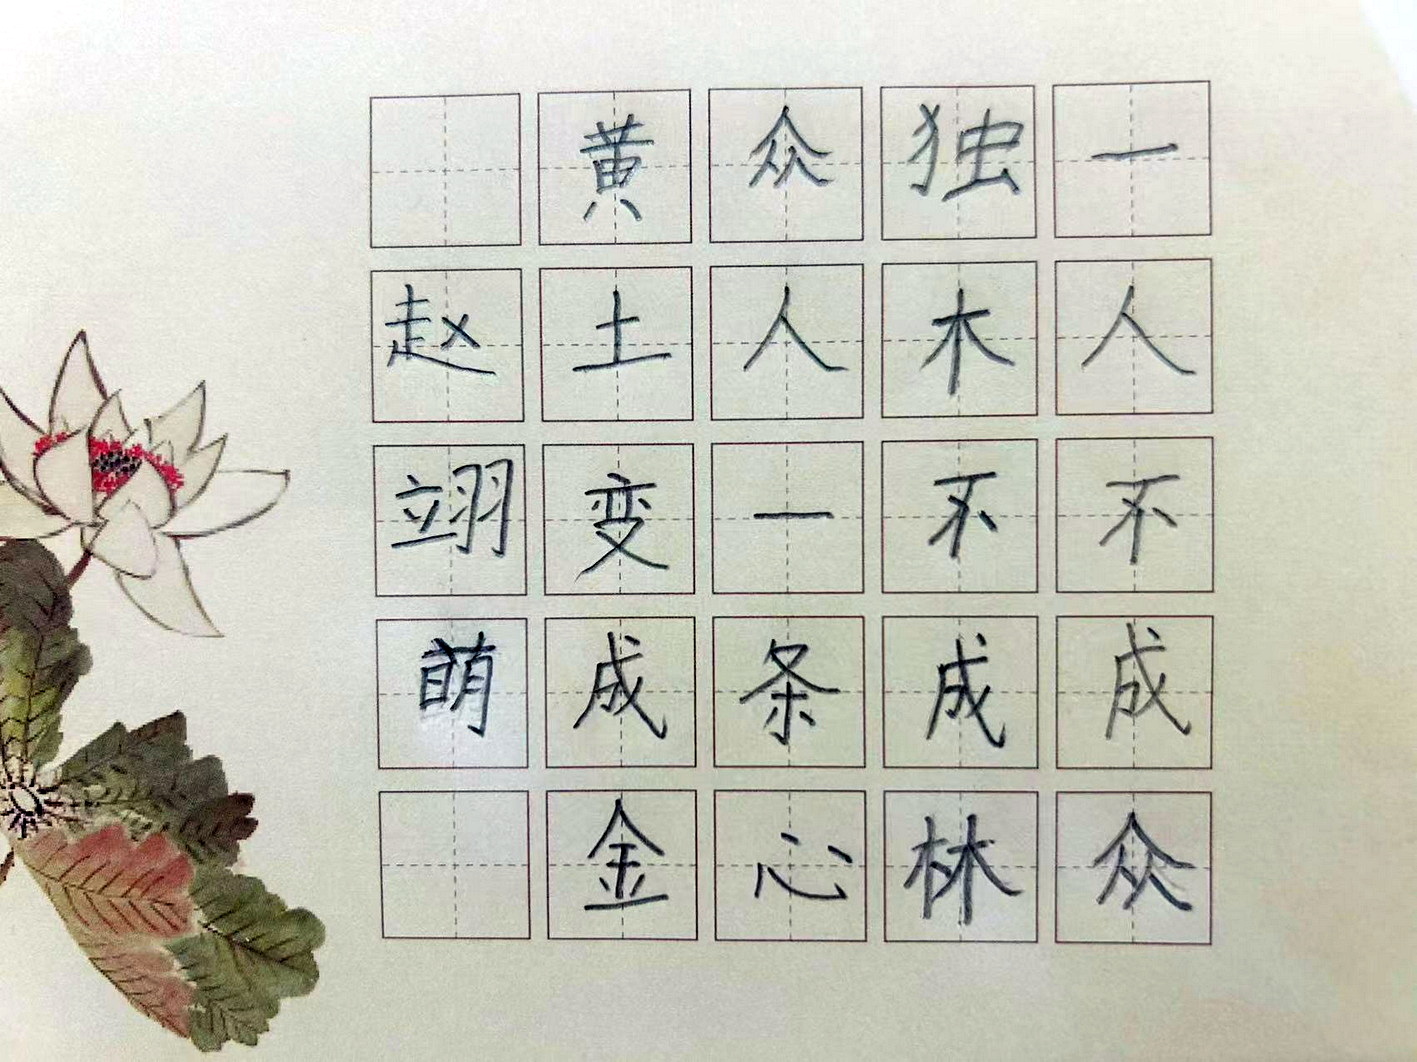 一人不成众
独木不成林
众人一条心
黄土变成金
赵翊萌